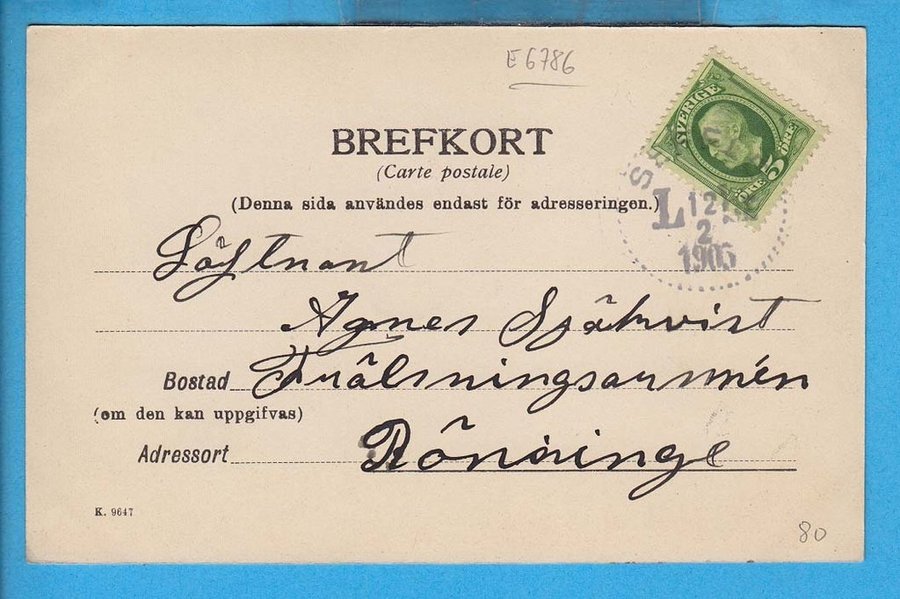 E 6786
BREFKORT
(Carte postale)
(Denna sida användes endast för adresseringen.)
SVERIGE
5 ÖRE
ÖRE
L
12
2
1905
Löjtnant
Agnes Sjökvist
Bostad Frälsningsarmén
(om den kan uppgifvas)
Adressort Rönninge
K. 9647
80